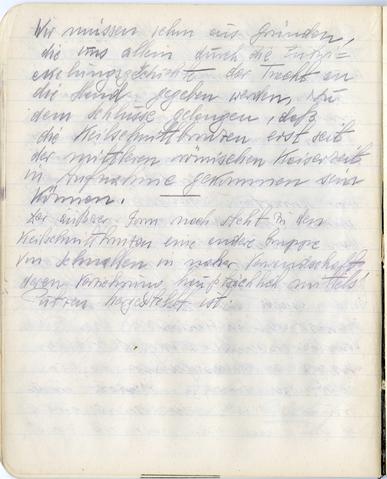 Wir müssen schon aus Gründen,
die uns allein durch die Entwi=
ckelungsgeschichte der Tracht an
die Hand gegeben werden, zu
dem Schlusse gelangen, daß
die Keilschnittbronzen erst seit
der mittleren römischen Kaiserzeit
in Aufnahme gekommen sein
können.
Der äußeren Form nach steht in den
Keilschnittbronzen eine andere Gruppe
von Schnallen in naher Verwandtschaft,
deren Verzierung hauptsächlich mittels
Punzen hergestellt ist.